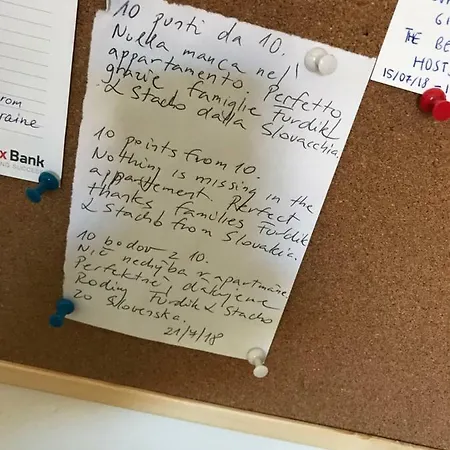 10 punti da 10.
Nulla manca nell'
appartamento. Perfetto,
grazie famiglie Furdik
& Stacho dalla Slovacchia.
10 points from 10.
Nothing is missing in the
appartement. Perfect
thanks families Furdik
& Stacho from Slovakia.
10 bodov z 10.
Nič nechýba v apartmáne
Perfektné, ďakujeme
Rodiny Furdik & Stacho
zo Slovenska.
21/7/18
rom
raine
x Bank
THE BE
HOSTS
15/07/18 -